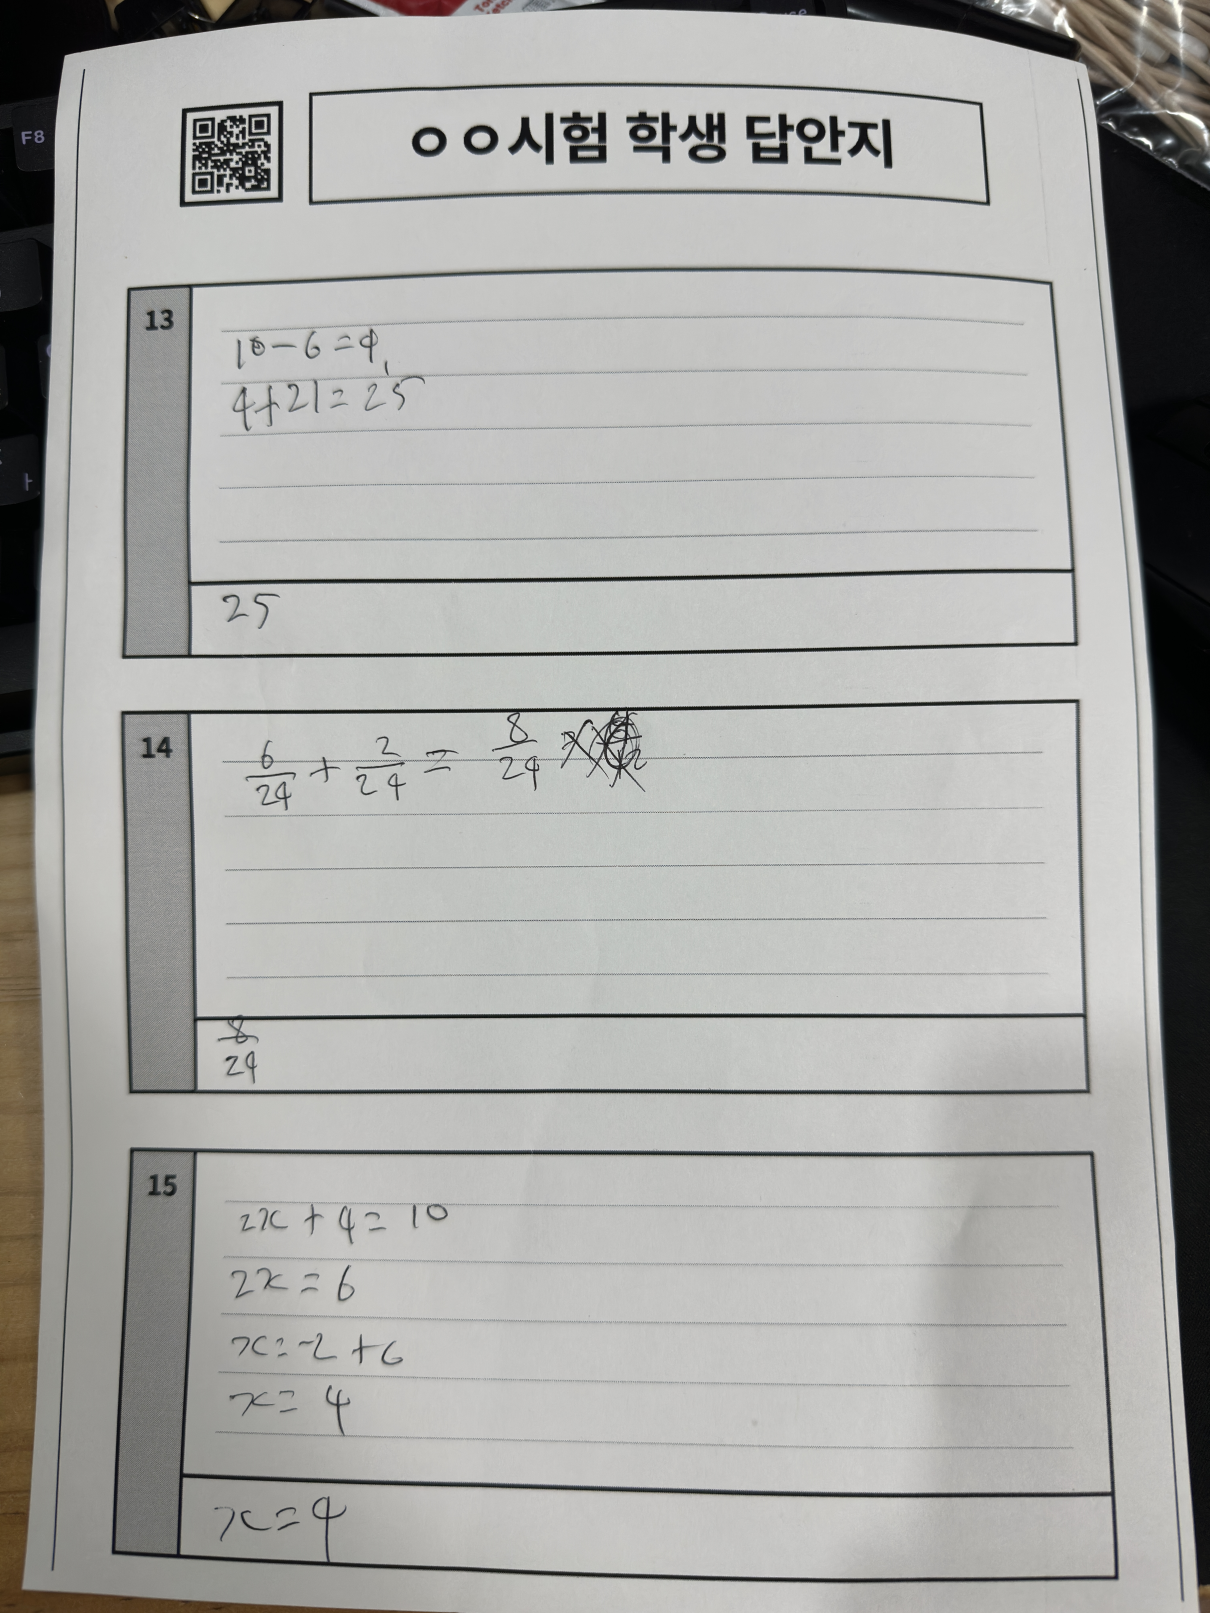 F8
ㅇㅇ시험 학생 답안지
13
10-6=4,
4+21=25
25
14
6/24 + 2/24 = 8/24
8/24
15
2x+4=10
2x=6
x=-2+6
x=4
x=4